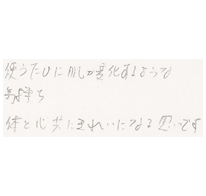 使うたびに肌が変化するような
気持ち
体と心共にきれいになる思いです